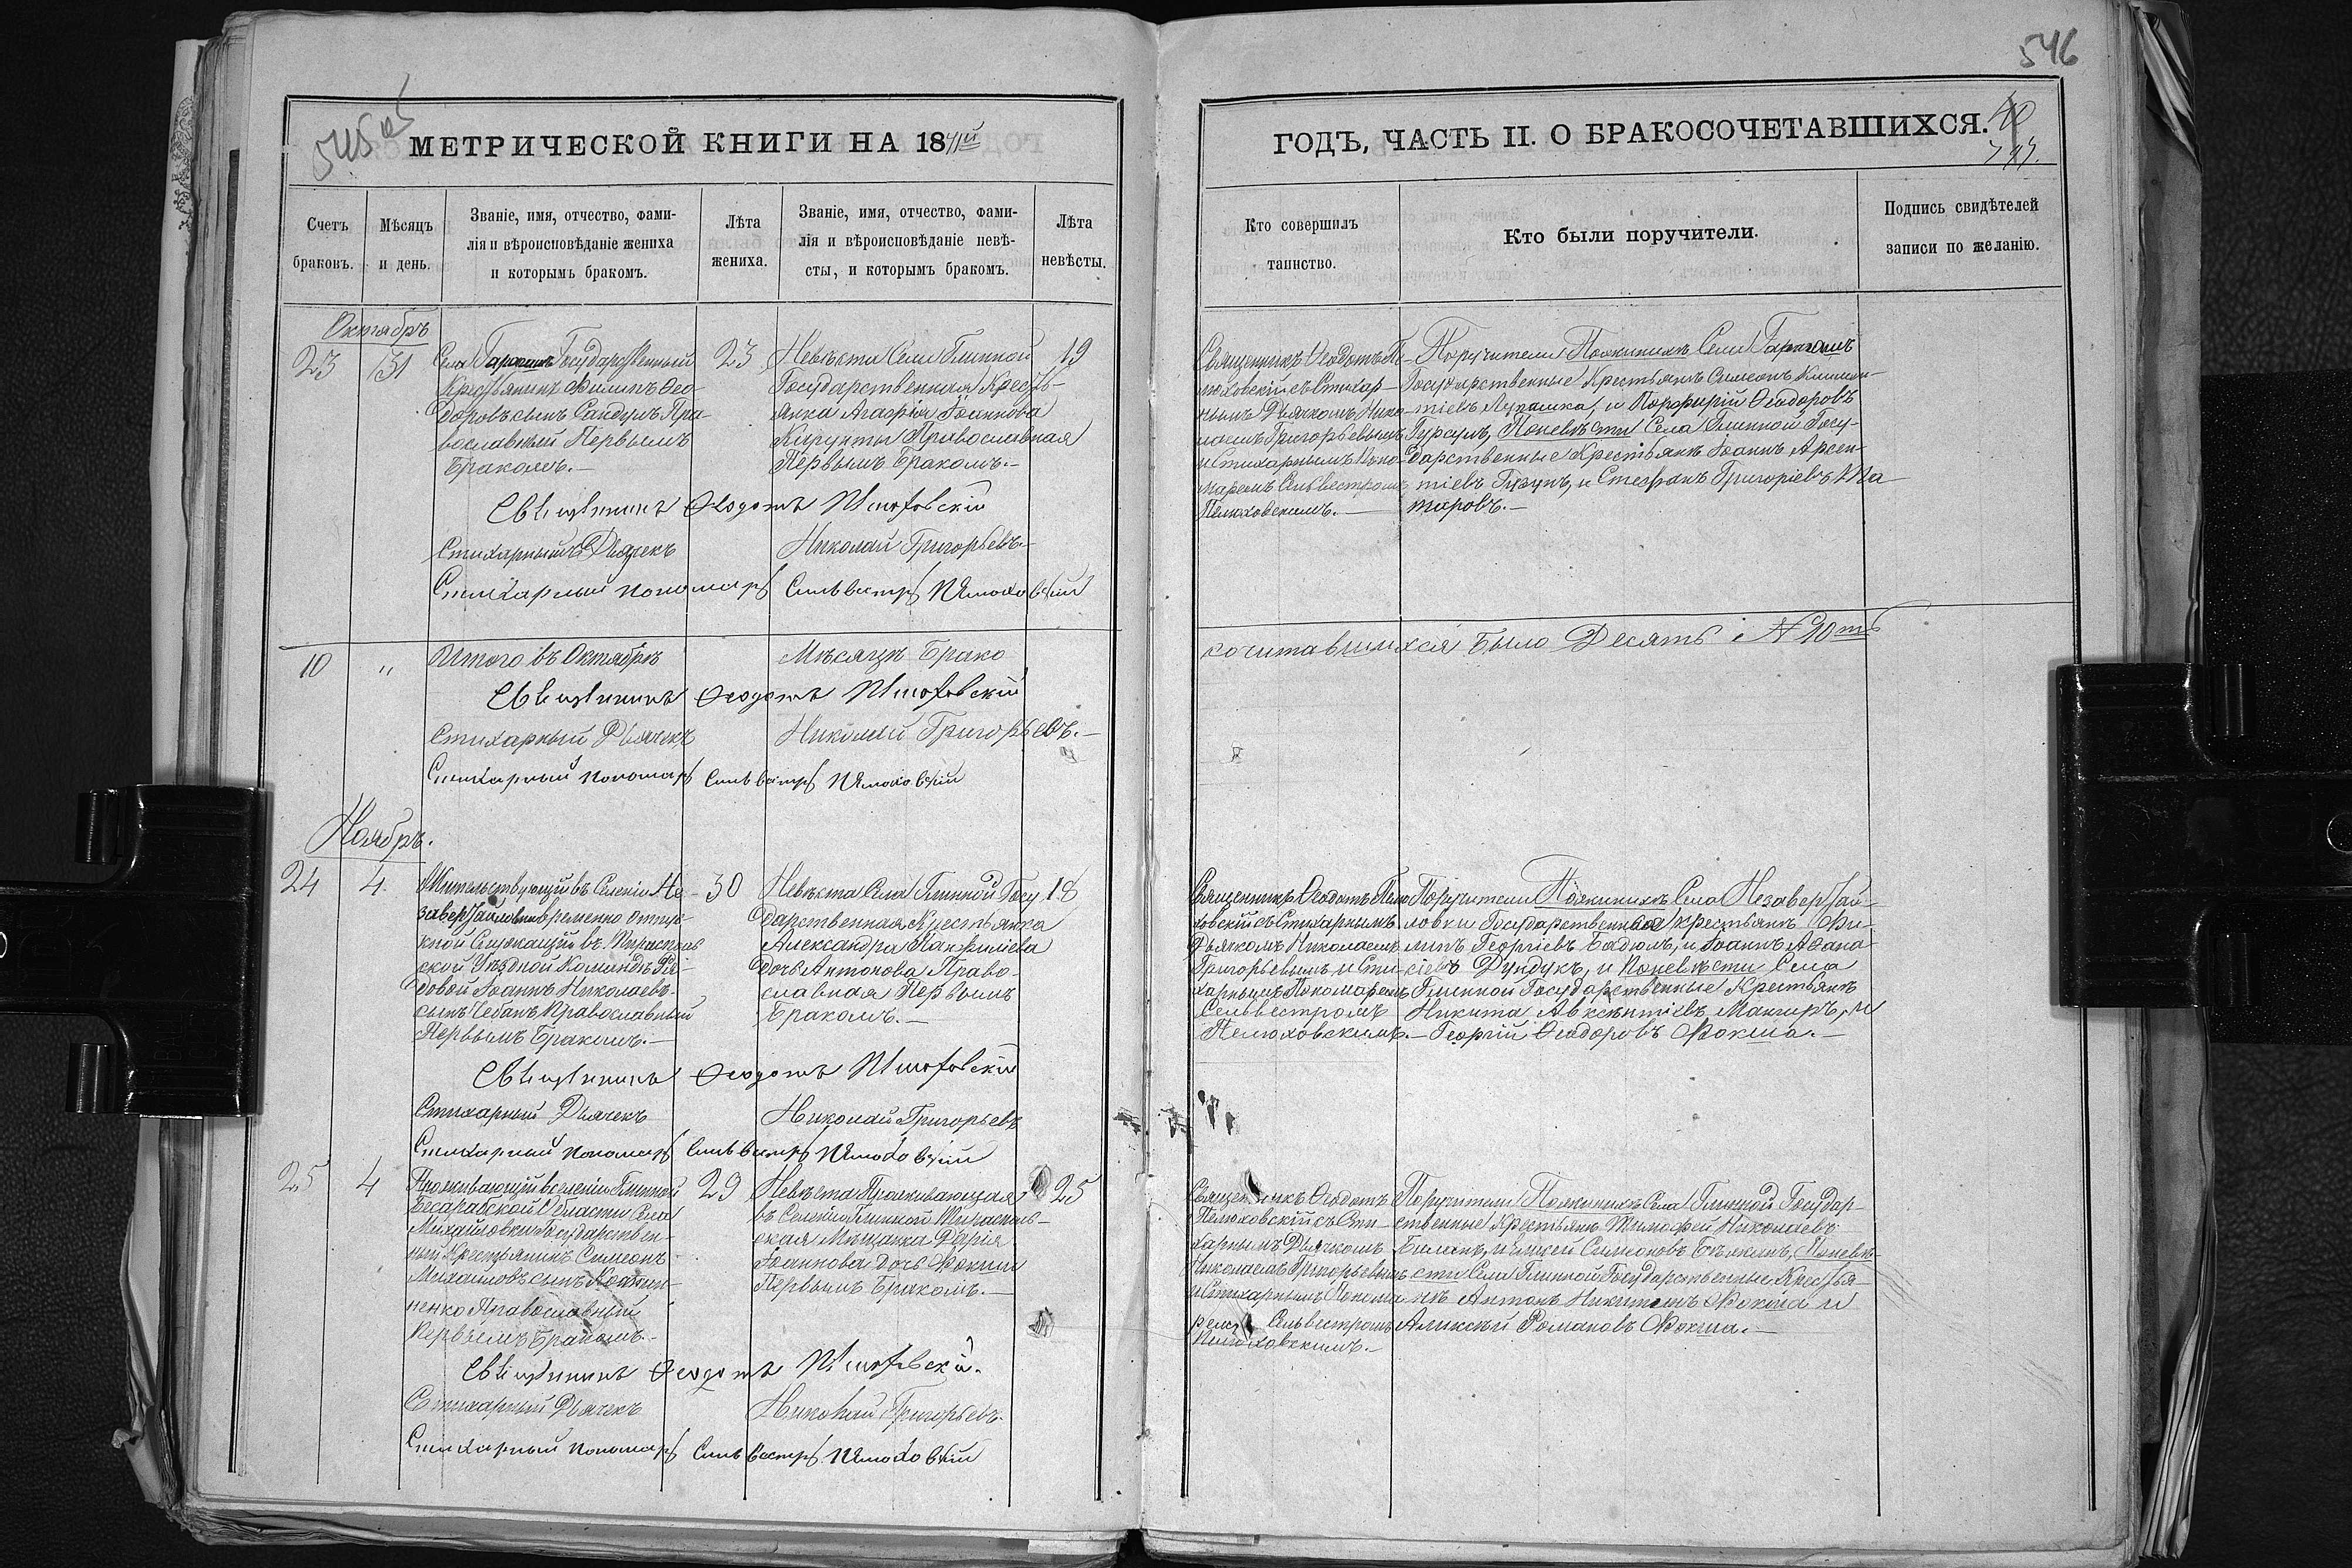 546
545
МЕТРИЧЕСКОЙ КНИГИ НА 1871й
ГОДЪ, ЧАСТЬ II. О БРАКОСОЧЕТАВШИХСЯ.
Счетъ браковъ.
Мѣсяцъ и день.
Званіе, имя, отчество, фами-
лія и вѣроисповѣданіе жениха
и которымъ бракомъ.
Лѣта жениха.
Званіе, имя, отчество, фами-
лія и вѣроисповѣданіе невѣ-
сты, и которымъ бракомъ.
Лѣта невѣсты.
Кто совершилъ
таинство.
Кто были поручители.
Подпись свидѣтелей
записи по желанію.
Октябрь
23
31
Села Государственный
Крестьянинъ Филипъ Ѳео-
доровъ сынъ Сандулъ Пра-
вославный Первымъ
Бракомъ.-
23
Невѣста Села Глинной
Государственная Кресть-
янка Агафія Іоаннова
Православная
Первымъ Бракомъ.-
19
Священникъ Ѳеодотъ Пе-
люховскій съ Стихар-
нымъ Дьячкомъ Нико-
лаемъ Григорьевымъ
и Стихарнымъ Поно-
маремъ Сильвестромъ
Пелюховскимъ.-
Поручители По женихѣ Села
Государственные Крестьяне Симеонъ
тіевъ Лукашка, и Порфирій Ѳеодоровъ
Гурсулъ, По невѣсти Села Глинной Госу-
дарственные Крестьяне Іоаннъ Арсен-
тіевъ и Стефанъ Григоріевъ
Священникъ Ѳеодотъ Пелюховскій
Стихарный Дьячекъ Николай Григорьевъ.-
Стихарный пономарь Сильвестръ Пелюховскій
10
"
Итого въ Октябрѣ Мѣсяцѣ Брако
сочитавшихся было Десять № 10ть
Священникъ Ѳеодотъ Пелюховскій
Стихарный Дьячекъ Николай Григорьевъ.-
Стихарный пономарь Сильвестръ Пелюховскій
Ноябрь.
24
4.
Жительствующій въ Селеніи Не-
завертайловки временно отпус-
кной Служащій въ Тираспольс
ской Уѣздной Командѣ Ря-
довой Іоаннъ Николаевъ
сынъ Чебанъ Православный
Первымъ Бракомъ.-
30
Невѣста Села Глинной Госу
дарственная Крестьянка
Александра Панфиліева
дочь Антонова Право-
славная Первымъ
Бракомъ.-
18
Священникъ Ѳеодотъ Пелю
ховскій съ Стихарнымъ
Дьякомъ Николаемъ
Григорьевымъ и Сти-
харнымъ Пономаремъ
Сельвестромъ
Пелюховскимъ.-
Поручители По женихѣ Села Незавертай-
ловки Государственные крестьяне Фи-
липъ Георгіевъ и Іоаннъ Афана-
сіевъ Дундукъ, и По невѣсти Села
Глинной Государственные Крестьяне
Никита Авксентіевъ и
Георгій Ѳеодоровъ Фокша.-
Священникъ Ѳеодотъ Пелюховскій
Стихарный Дьячекъ Николай Григорьевъ
Стихарный пономарь Сильвестръ Пелюховскій
25
4
Проживающій въ селеніи Глинной
Бесарабской Области Села
Михайловки Государствен-
ный Крестьянинъ Симеонъ
Михайловъ сынъ
Православный
Первымъ Бракомъ.-
29
Невѣста Проживающая
въ Селеніи Глинной Тирасполь-
ская Мѣщанка Дарія
Іоаннова дочь Фокши
Первымъ Бракомъ.-
25
Священникъ Ѳеодотъ
Пелюховскій съ Сти-
харнымъ Дьячкомъ
Николаемъ Григорьевымъ
и Стихарнымъ Понома
ремъ Сельвестромъ
Пелюховскимъ.-
Поручители По женихѣ Села Глинной Государ-
ственные Крестьяне Тимофей Николаевъ
Симеоновъ По невѣ-
сти Села Глинной Государственные Крестья-
не Антонъ Никитинъ Фокша и
Алексѣй Романовъ Фокша.-
Священникъ Ѳеодотъ Пелюховскій.
Стихарный Дьячекъ Николай Григорьевъ.
Стихарный пономарь Сильвестръ Пелюховскій